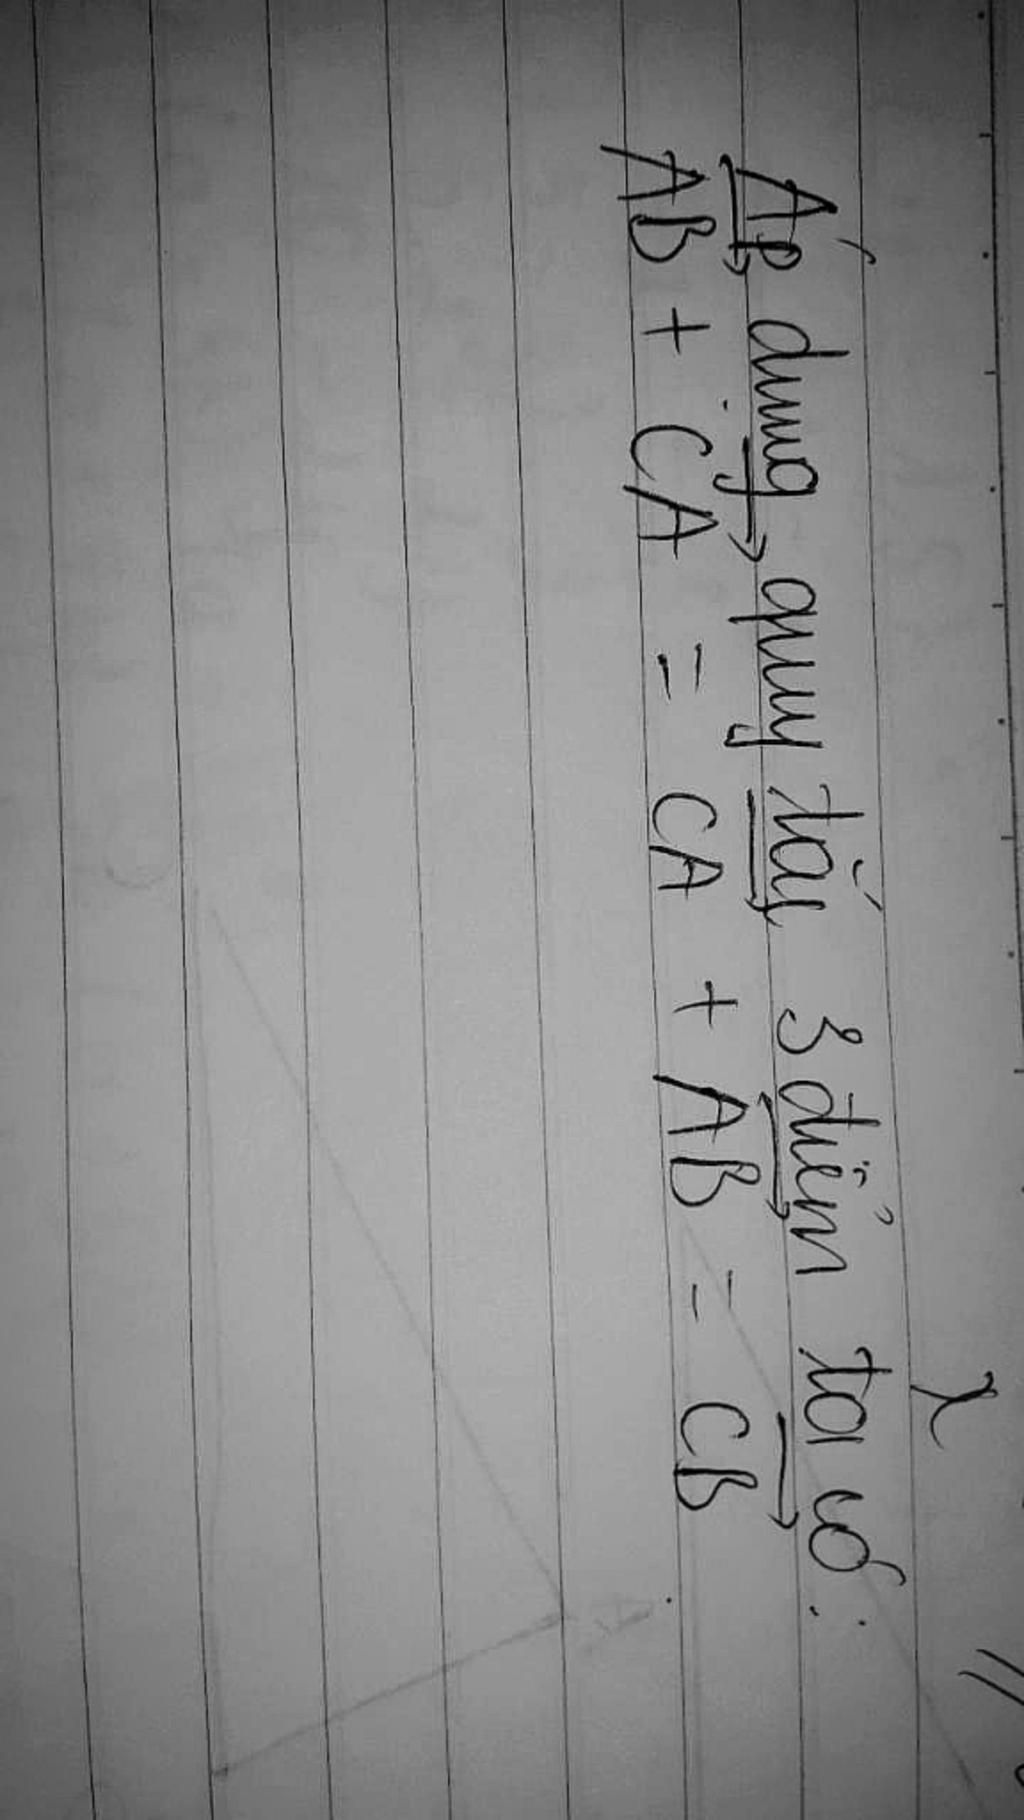 Áp dụng quy tắc 3 điểm ta có:
AB + CA = CA + AB = CB.